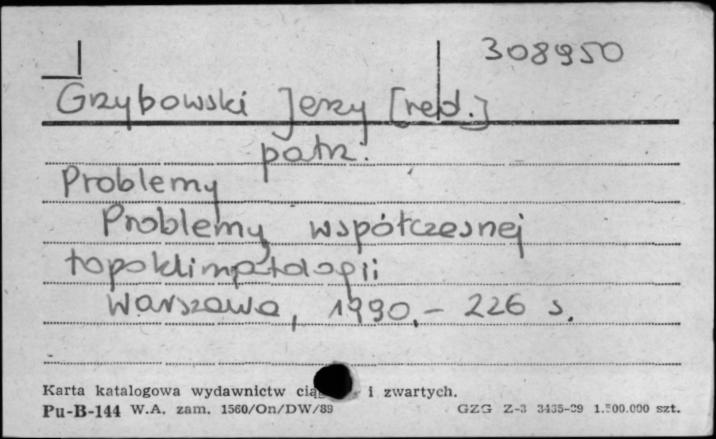 308950
Grzybowski Jerzy [red.]
patrz:
Problemy
Problemy współczesnej
topoklimatologii
Warszawa, 1990.- 226 s.
Karta katalogowa wydawnictw i zwartych.
Pu-B-144 W.A. zam. 1560/On/DW/89 GZG Z-3 3435-89 1.500.000 szt.